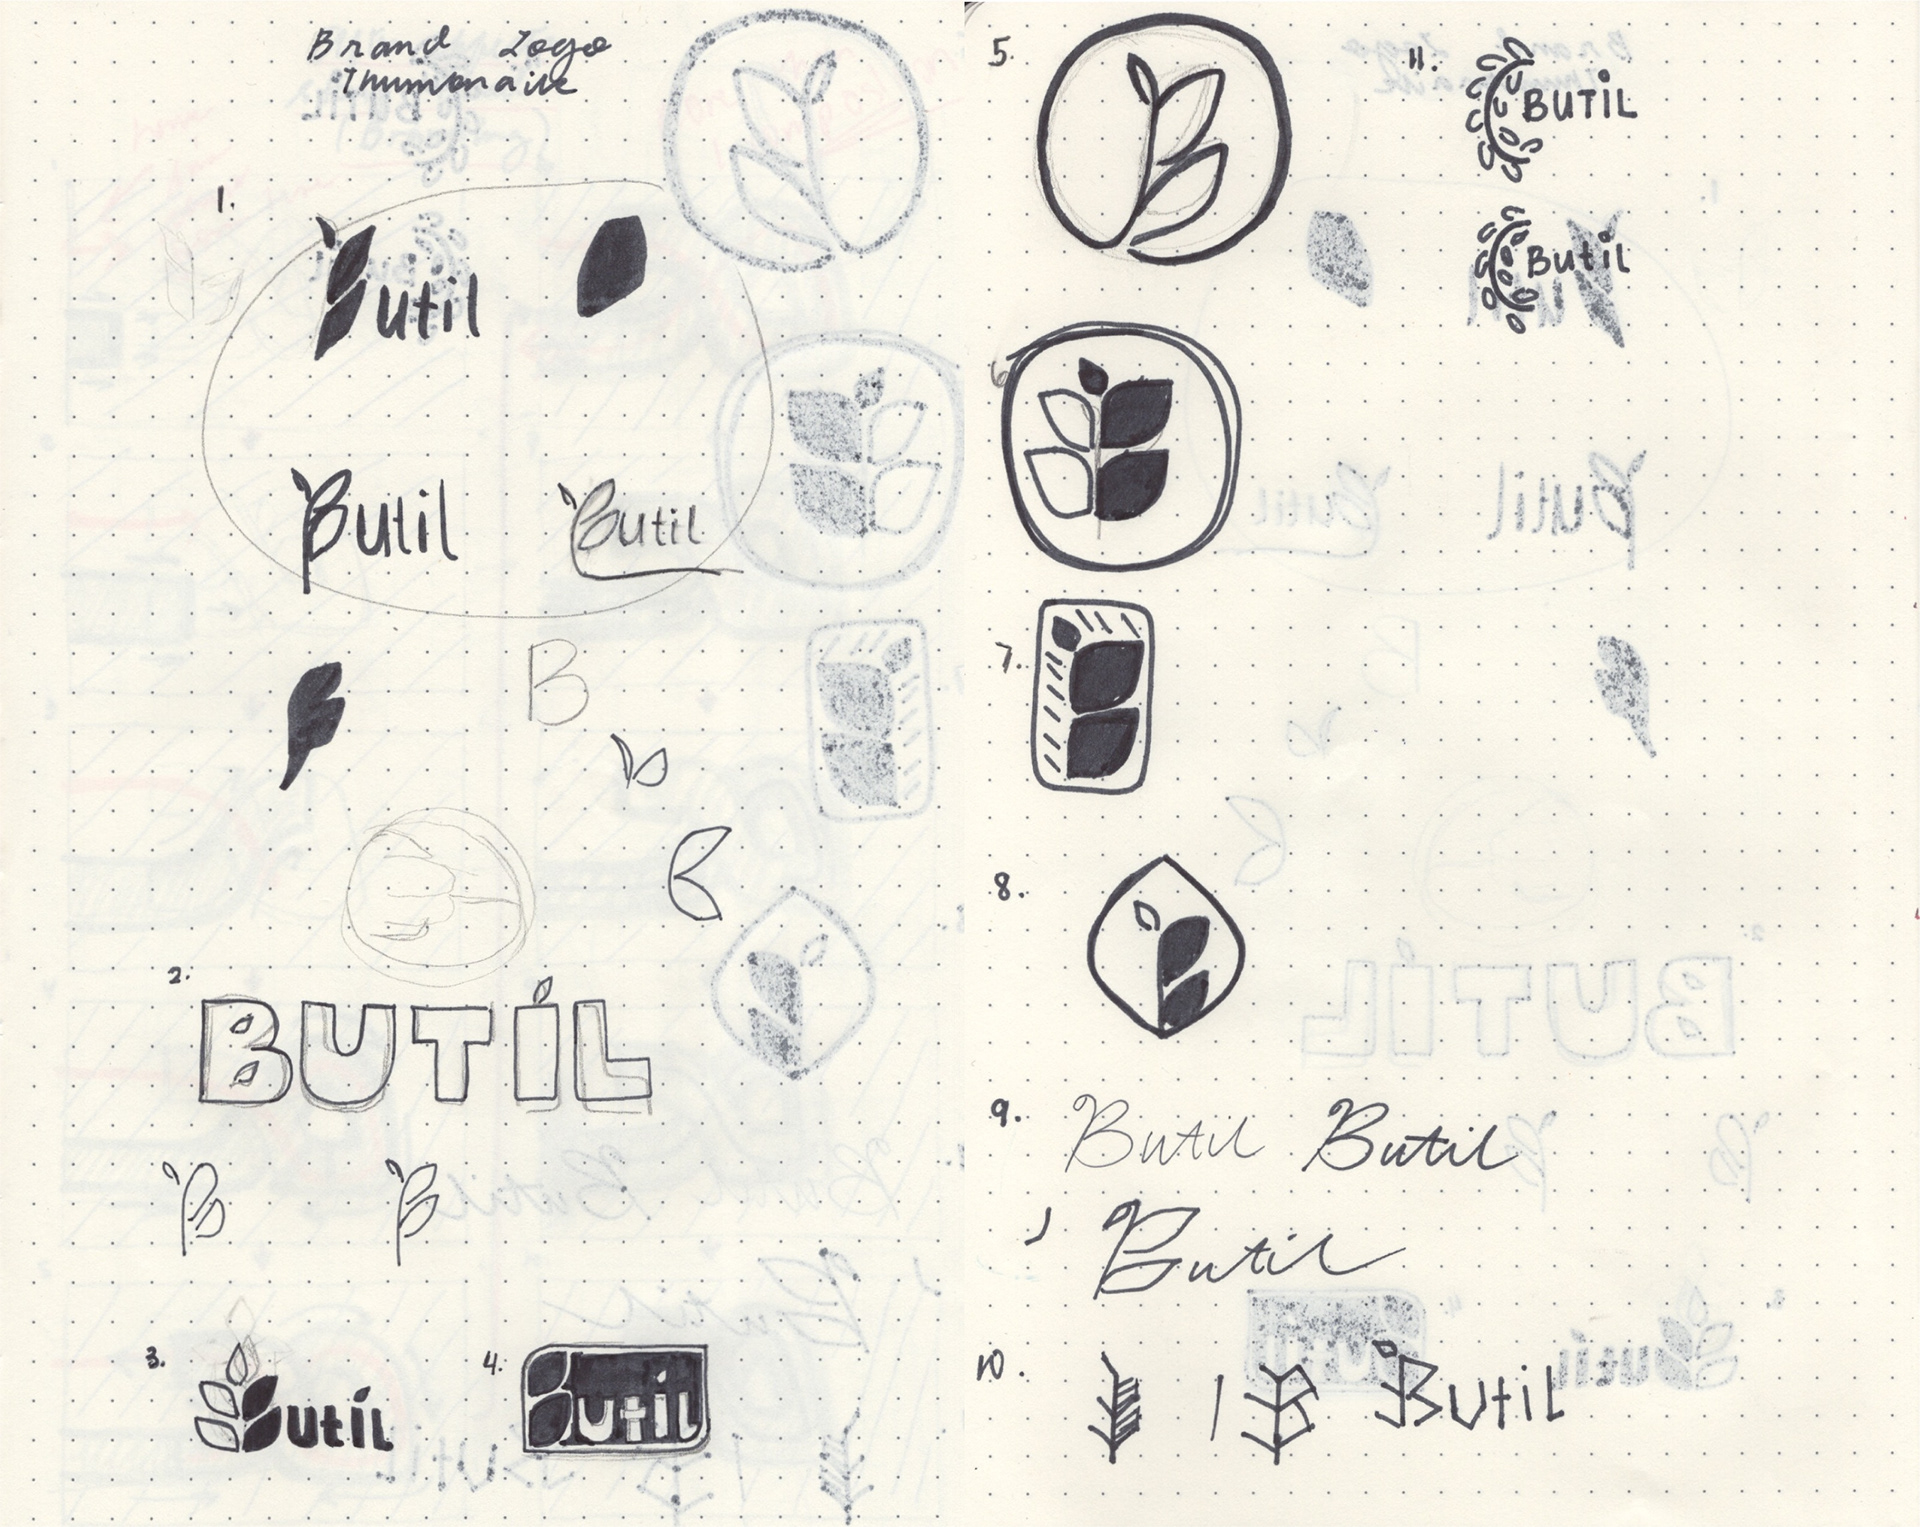 Brand Logo
Thumbnaile
1.
Butil
Butil
Butil
B
2.
BUTÍL
B
B
3.
Butíl
4.
Butíl
5.
6
7.
8.
9.
Butil
Butil
Butil
10.
B
Butil
11.
BUTIL
Butil